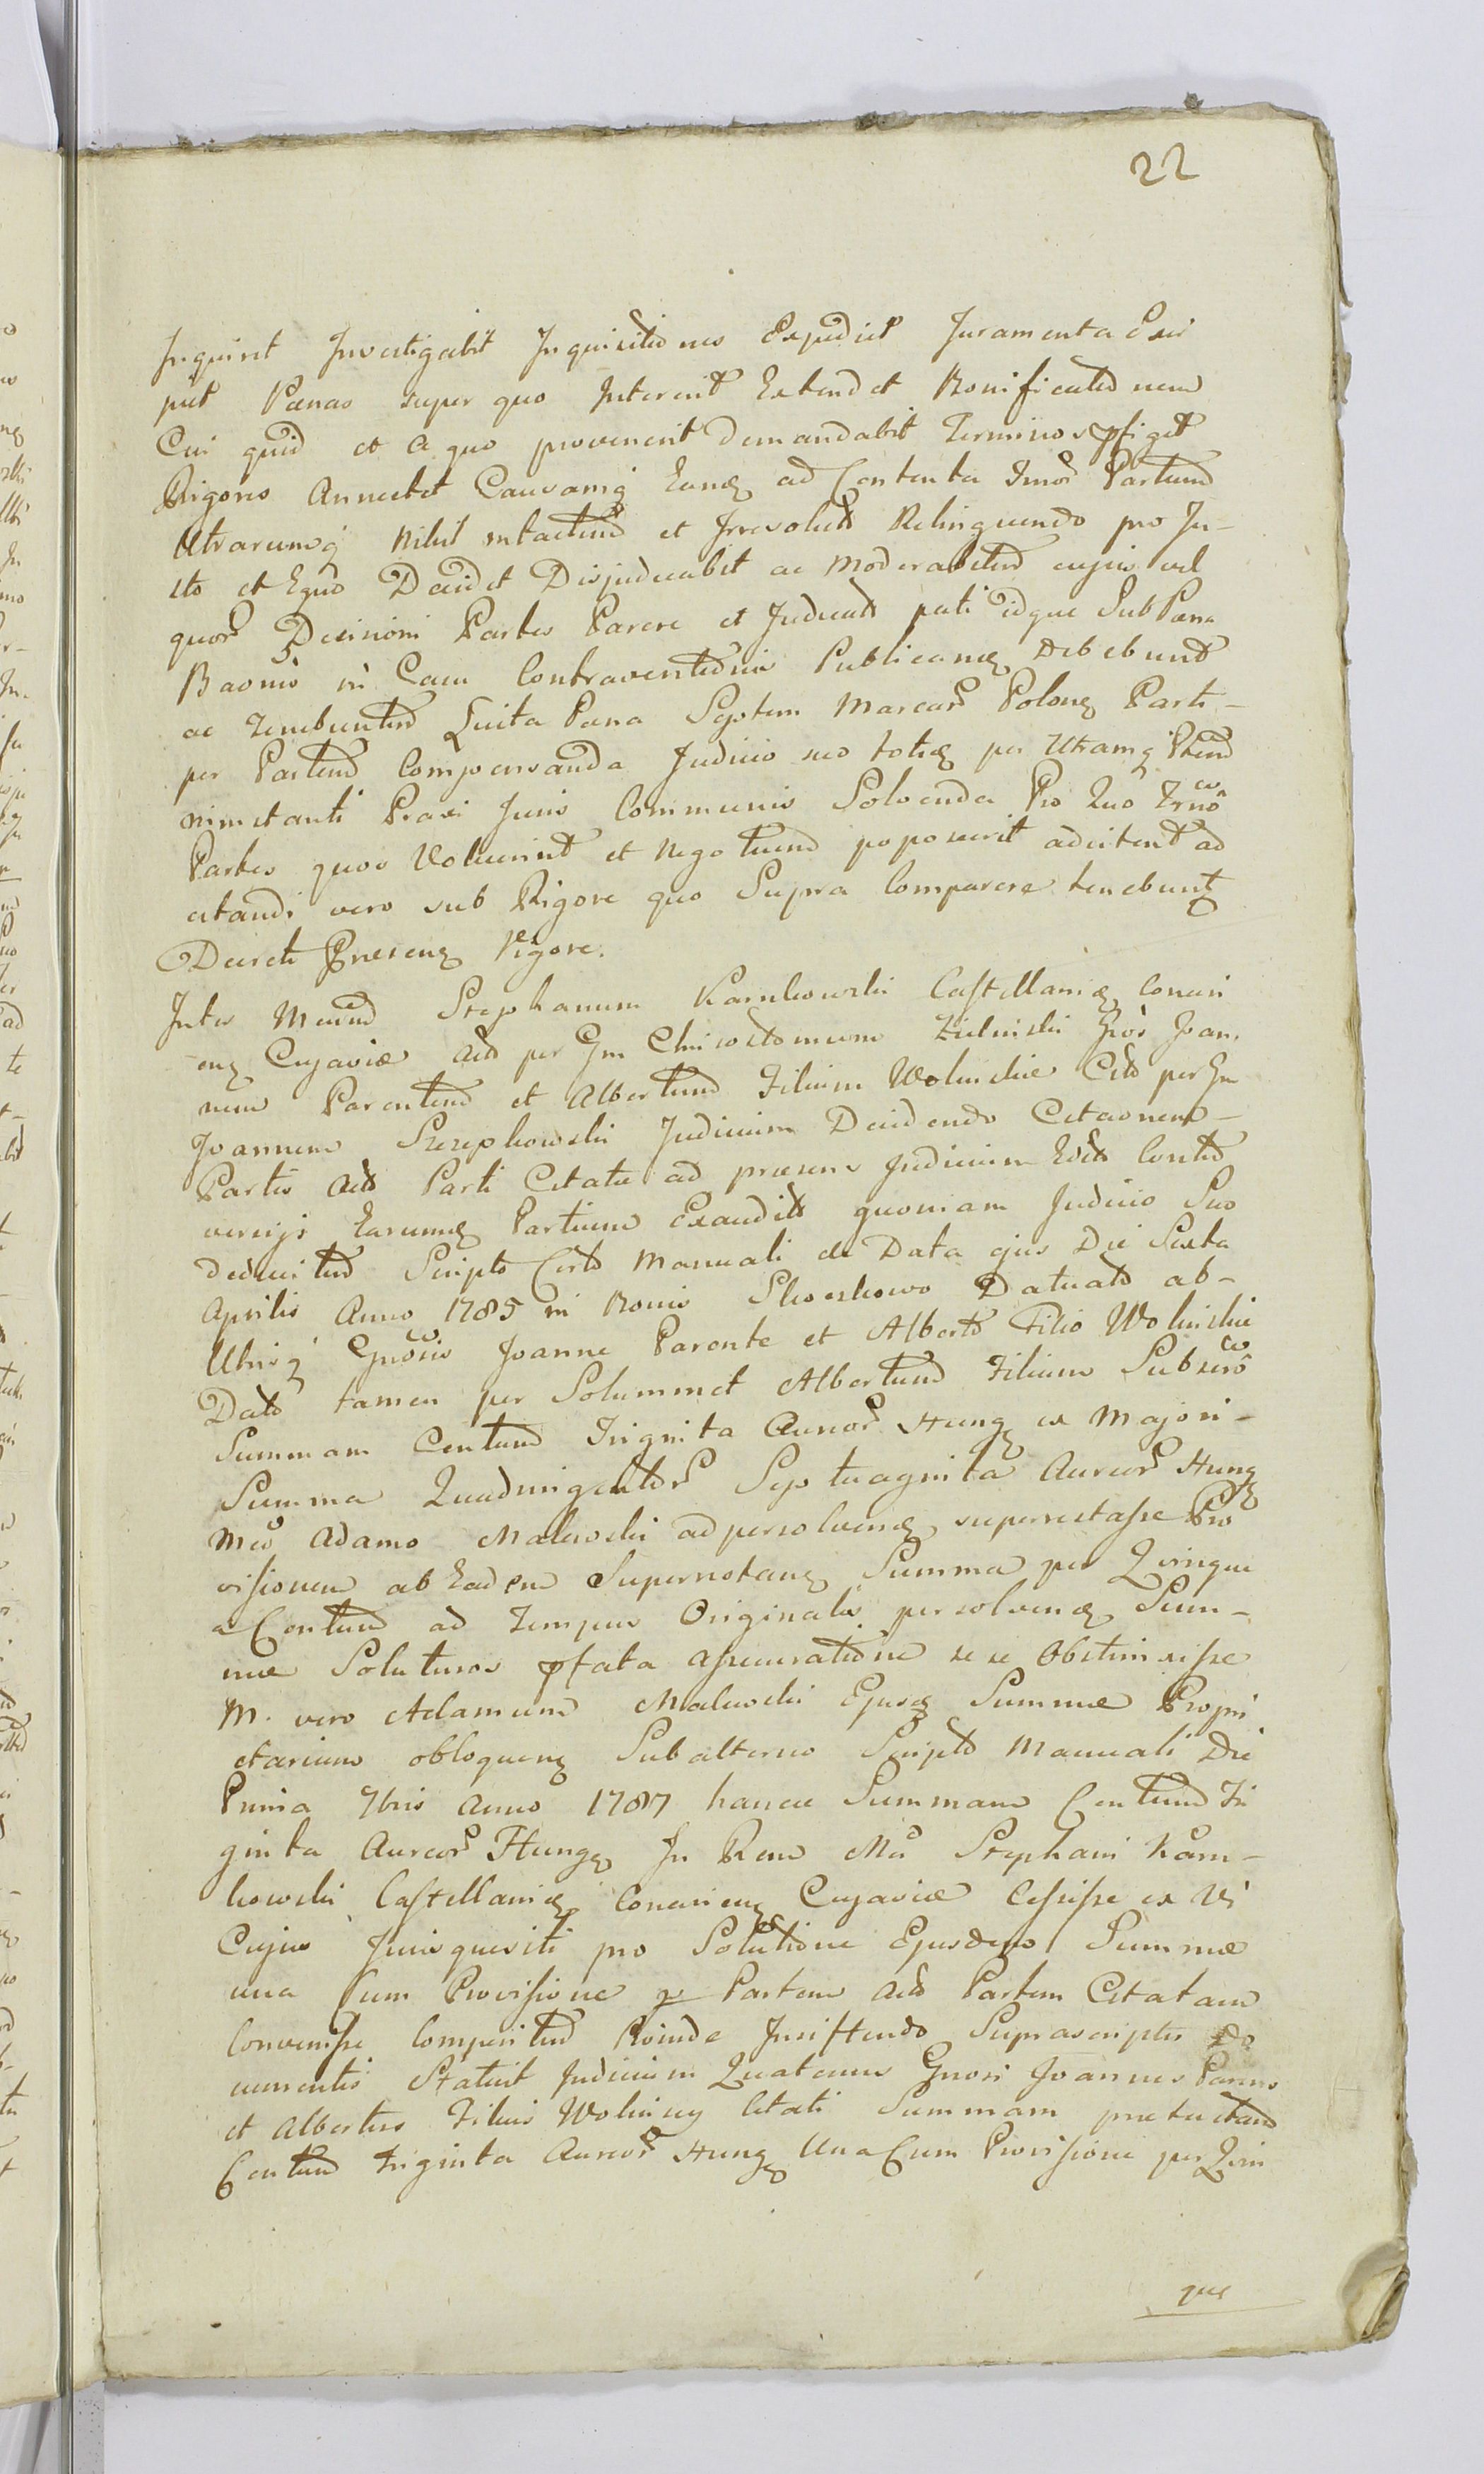 22
Inquiret Investigabit Inquisitiones Expediet Juramenta Exci
piet Pænas super quo Intererit Extendet Bonificationem
Cui quid et a quo provenerit demandabit Terminos pfiget
Rigores Annectet Causamq Eand ad Contenta Imor Partium
Utrarumq Nihil intactum et Irresolutt Relinquendo pro Ju-
sto et Equo Decidet Disjudicabit ac Moderabitur cujus vel
quor Decisioni Partes Parere et Judicatt pati idque Sub Pæna
Baonis in Casu Contraventionis Publicand debebunt
ac tenebuntur Luita Pæna Septem Marcar Polon Parti-
per Partem Compensanda Judicio seo totid per Utramq Ptem
nimetanti Praxi Juris Communis Solvenda Pro Quo Trnô
Partes quos Voluerint et Negotium poposcerit adcitent ad
citandi vero sub Rigore quo Supra Comparere tenebunt
Decreti Præsen Vigore.
Inter Mcum Stephanum Karnkowski Castellanid Consri
en Cujaviæ Act per Gm Chrisostomum Zielinski Gros Joan.
nem Parentem et Albertum Filium Wolinskie Citt per Gm
Joannem Szczepkowski Judicium Decidendo Citaonem-
Partis Act Parti Citatæ ad præsens Judicium Edit Contro
versijs Earumd Partium Exauditt quoniam Judicio Suo
deducitur Scripto Certo Manuali de Data ejus Die Sexta
Aprilis Anno 1785 in Bonis Skoszkowo Datuato ab-
Utrisq Gnôsis Joanne Parente et Alberto Filio Wolinskie
Dato tamen per Solummet Albertum Filium Subscrô
Summam Centum Triginta Auror Hung ex Majori-
Summa Quadringentor Septuaginta Aureor Hung
Mco Adamo Malewski ad persolvend superrestasse Pro
visionem ab Eadem Supernotan Summa per Quinque
a Centum ad Tempus Originalis persolvend Sum-
mæ Soluturos pfata assecuratione se se Obstrinxisse
M. vero Adamum Malewski Ejusd Summæ Propri
etarium obloquen Subalterno Scripto Manuali Die
Prima 7bris Anno 1787 hancce Summam Centum Tri
ginta Aureor Hung In Rem Mci Stephani Karn-
kowski Castellanid Consrien Cujaviæ Cessisse ex Vi
Cujus Jurisquesiti pro Solutione Ejusdem Summæ
una Cum Provisione p Partem Act Partem Citatam
Convenisse Comperitur Proinde Insistendo Suprascriptis Do
cumentis Statuit Judicium Quatenus Gnosi Joannes Parens
et Albertus Filius Wolinscy Citati Summam prætactam
Centum triginta Aureor Hung Una Cum Provisione per Quin
que